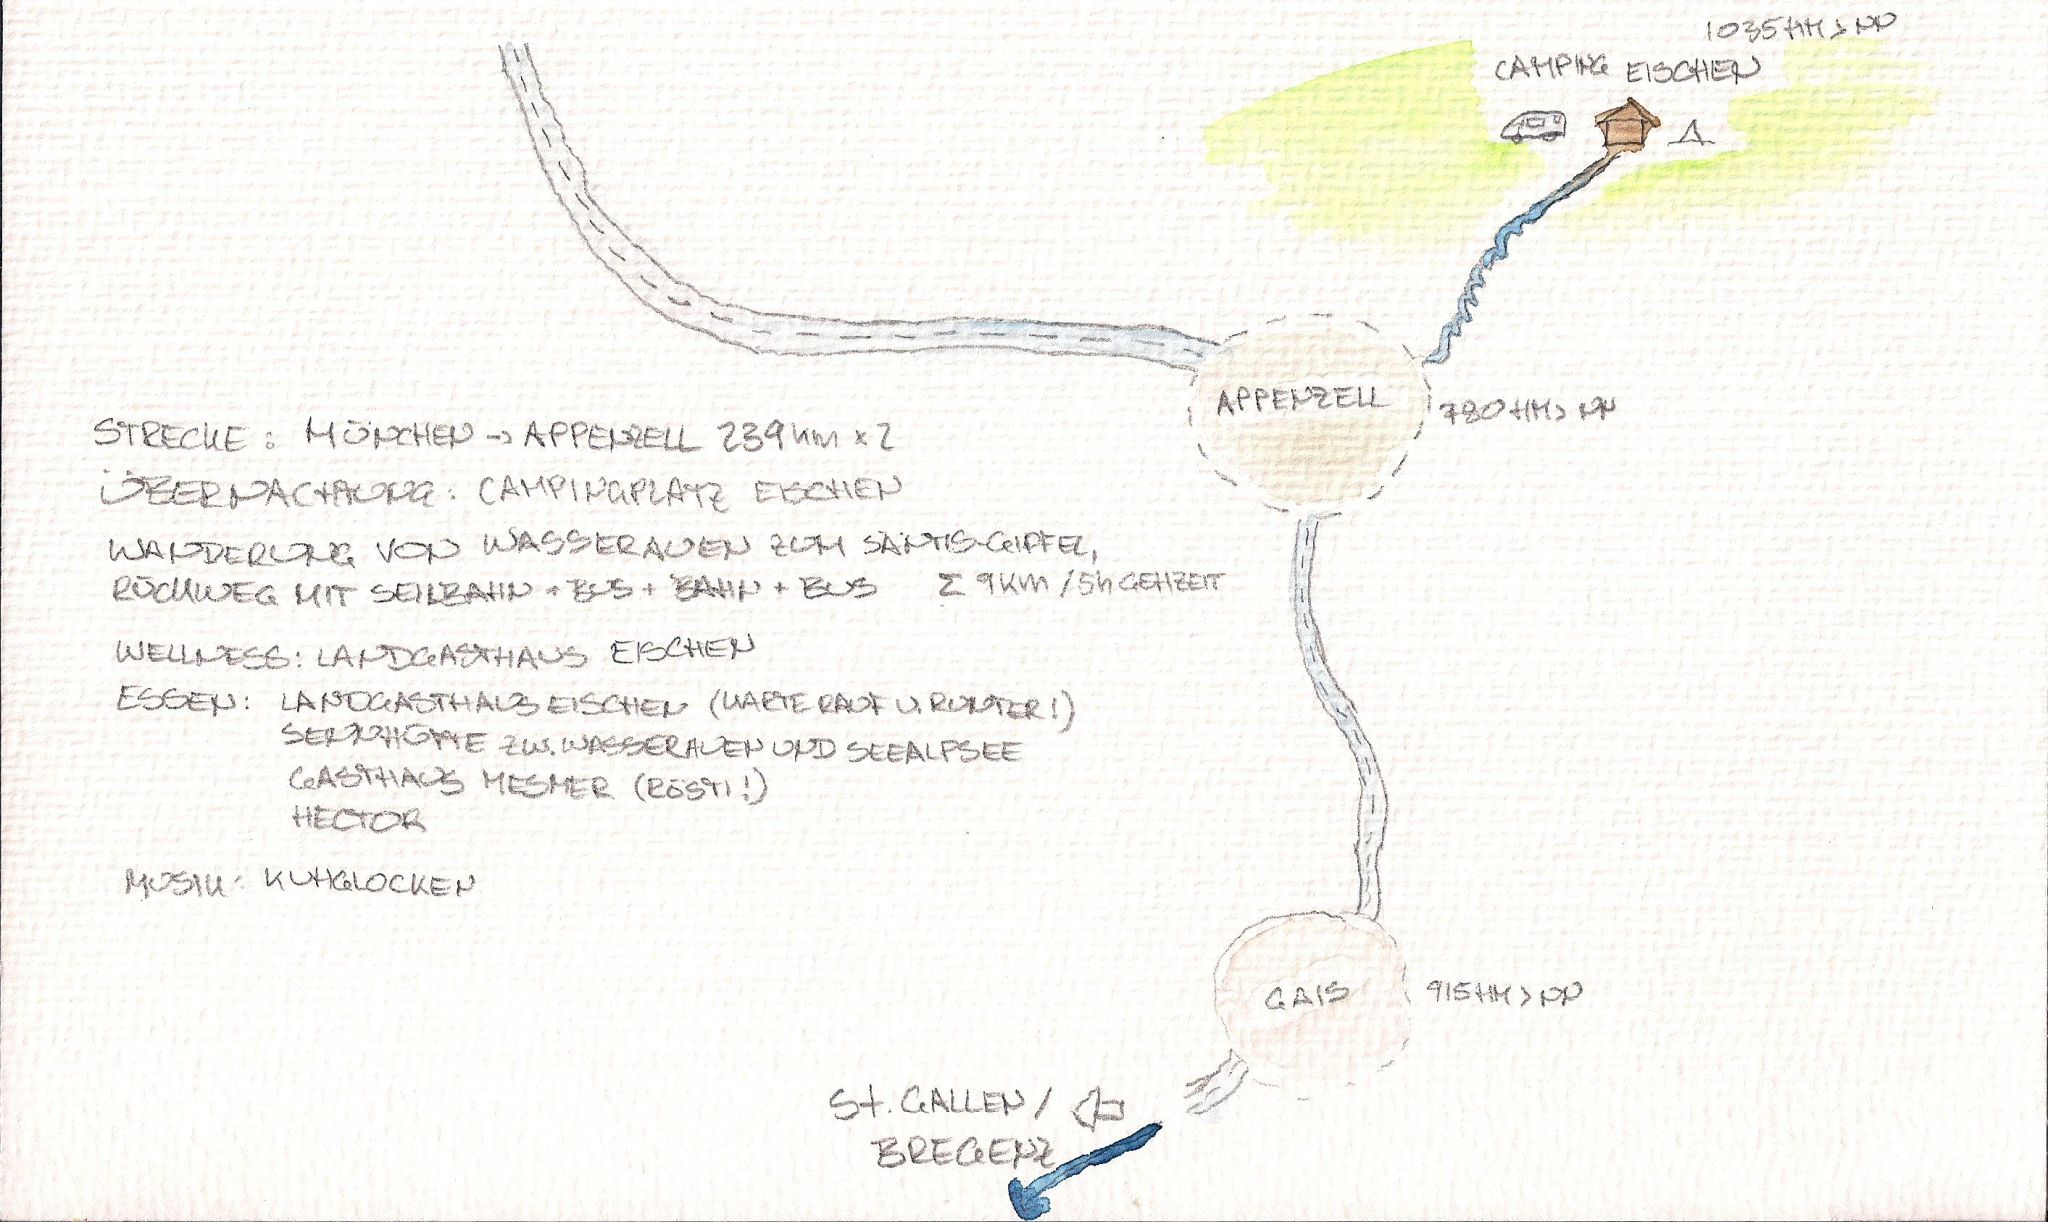 1035 HM > NN
CAMPING EISCHEN
APPENZELL
780 HM > NN
STRECKE: MÜNCHEN → APPENZELL 239 km x 2
ÜBERNACHTUNG: CAMPINGPLATZ EISCHEN
WANDERUNG VON WASSERAUEN ZUM SÄNTIS-GIPFEL,
RÜCKWEG MIT SEILBAHN + BUS + BAHN + BUS Σ 9 km / 5h GEHZEIT
WELLNESS: LANDGASTHAUS EISCHEN
ESSEN: LANDGASTHAUS EISCHEN (KARTE RAUF U. RUNTER!)
SENNHÜTTE ZW. WASSERAUEN UND SEEALPSEE
GASTHAUS MESMER (RÖSTI!)
HECTOR
MUSIK: KUHGLOCKEN
GAIS
915 HM > NN
St. GALLEN /
BREGENZ